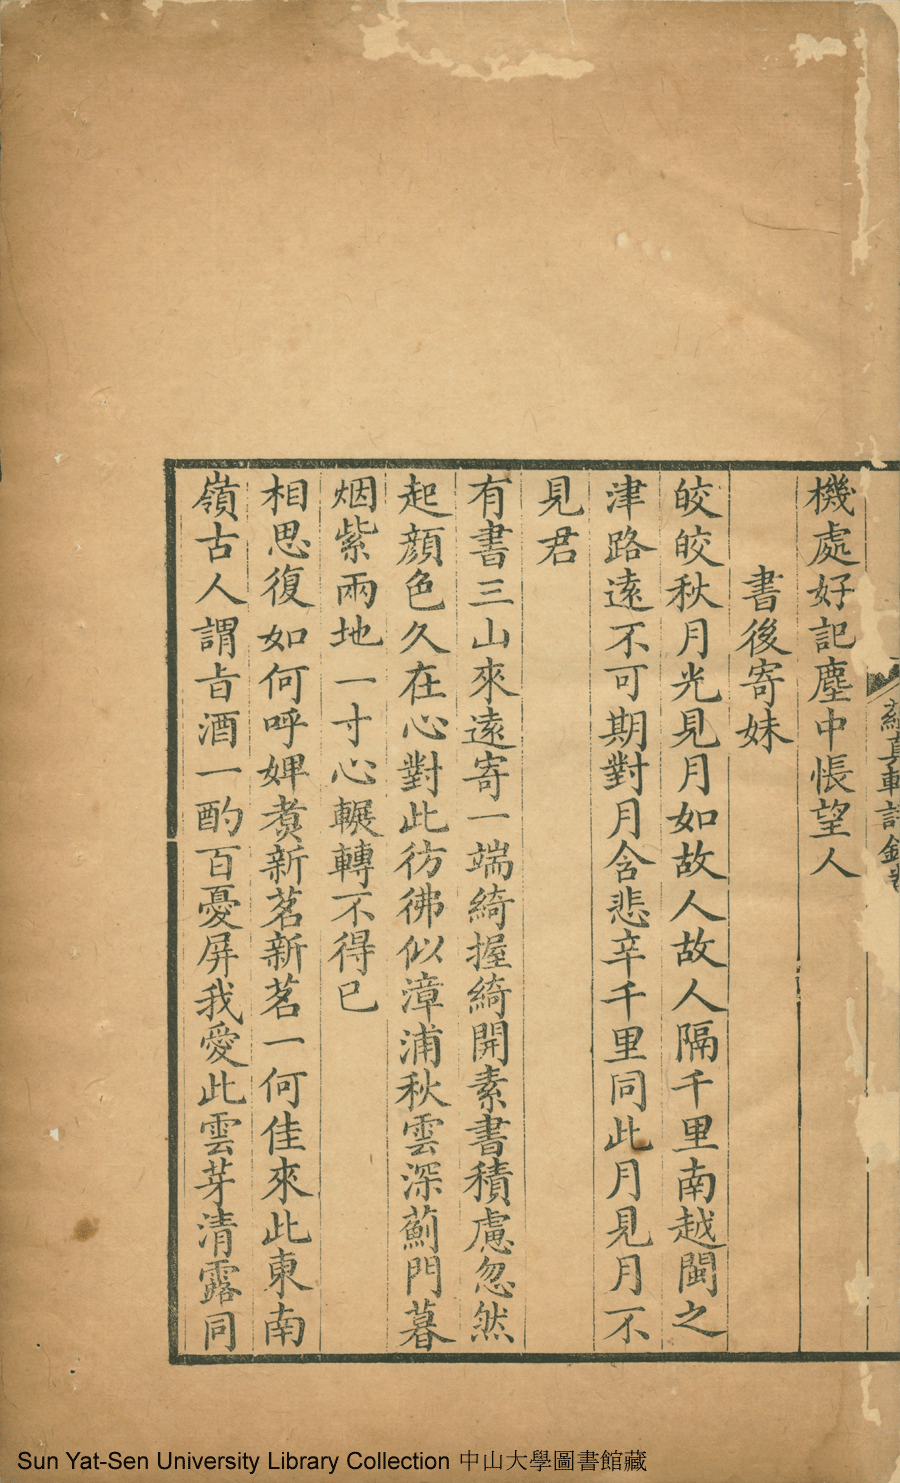 真軒詩
機處好記塵中悵望人
書後寄妹
皎皎秋月光見月如故人故人隔千里南越閩之
津路遠不可期對月含悲辛千里同此月見月不
見君
有書三山來遠寄一端綺握綺開素書積慮忽然
起顏色久在心對此彷彿似漳浦秋雲深薊門暮
烟紫兩地一寸心輾轉不得已
相思復如何呼婢煑新茗新茗一何佳來此東南
嶺古人謂旨酒一酌百憂屏我愛此雲芽清露同
Sun Yat-Sen University Library Collection 中山大學圖書館藏